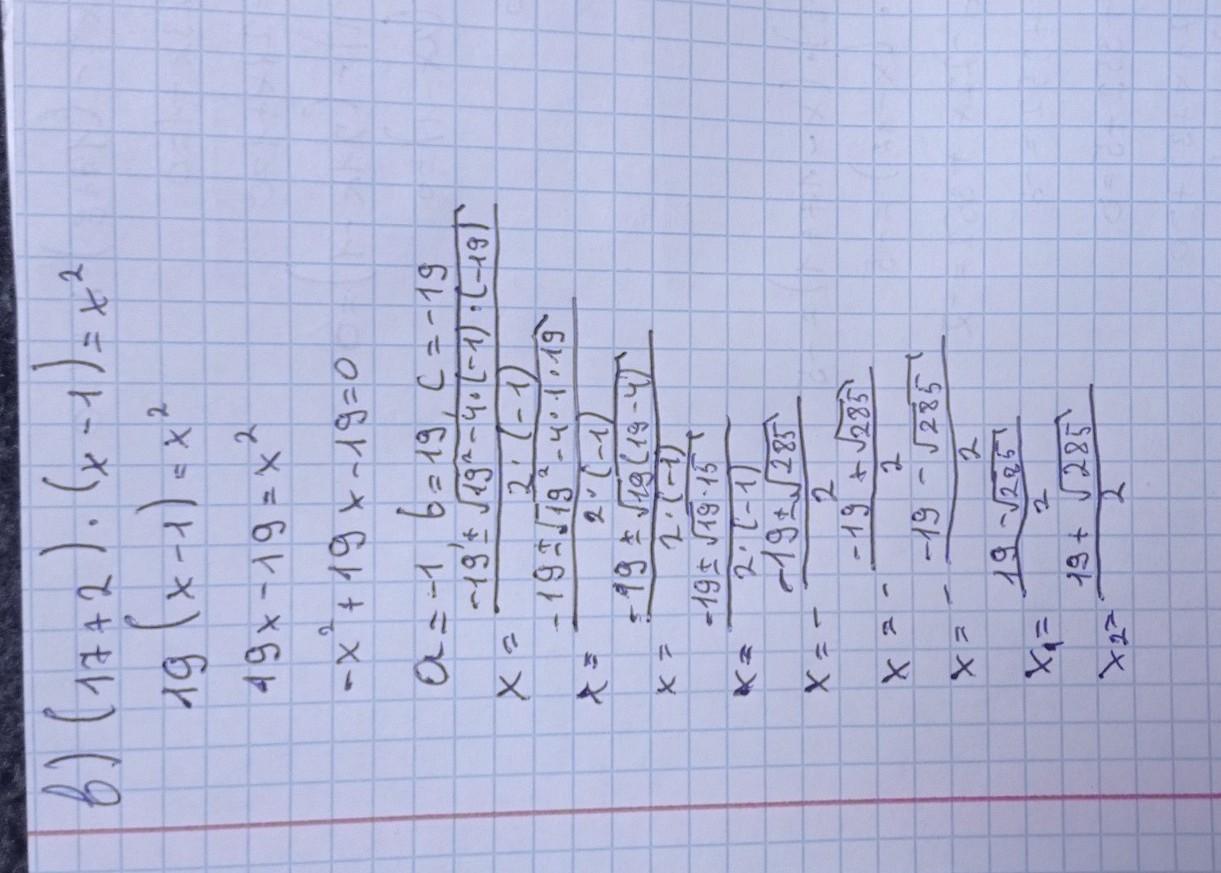 в) (17+2)·(x-1)=x²
19(x-1)=x²
19x-19=x²
-x²+19x-19=0
a=-1 b=19, c=-19
x= (-19±√(19²-4·(-1)·(-19)))/(2·(-1))
x= (-19±√(19²-4·1·19))/(2·(-1))
x= (-19±√(19(19-4)))/(2·(-1))
x= (-19±√(19·15))/(2·(-1))
x= - (-19±√285)/2
x= - (-19+√285)/2
x= - (-19-√285)/2
x₁= (19-√285)/2
x₂= (19+√285)/2